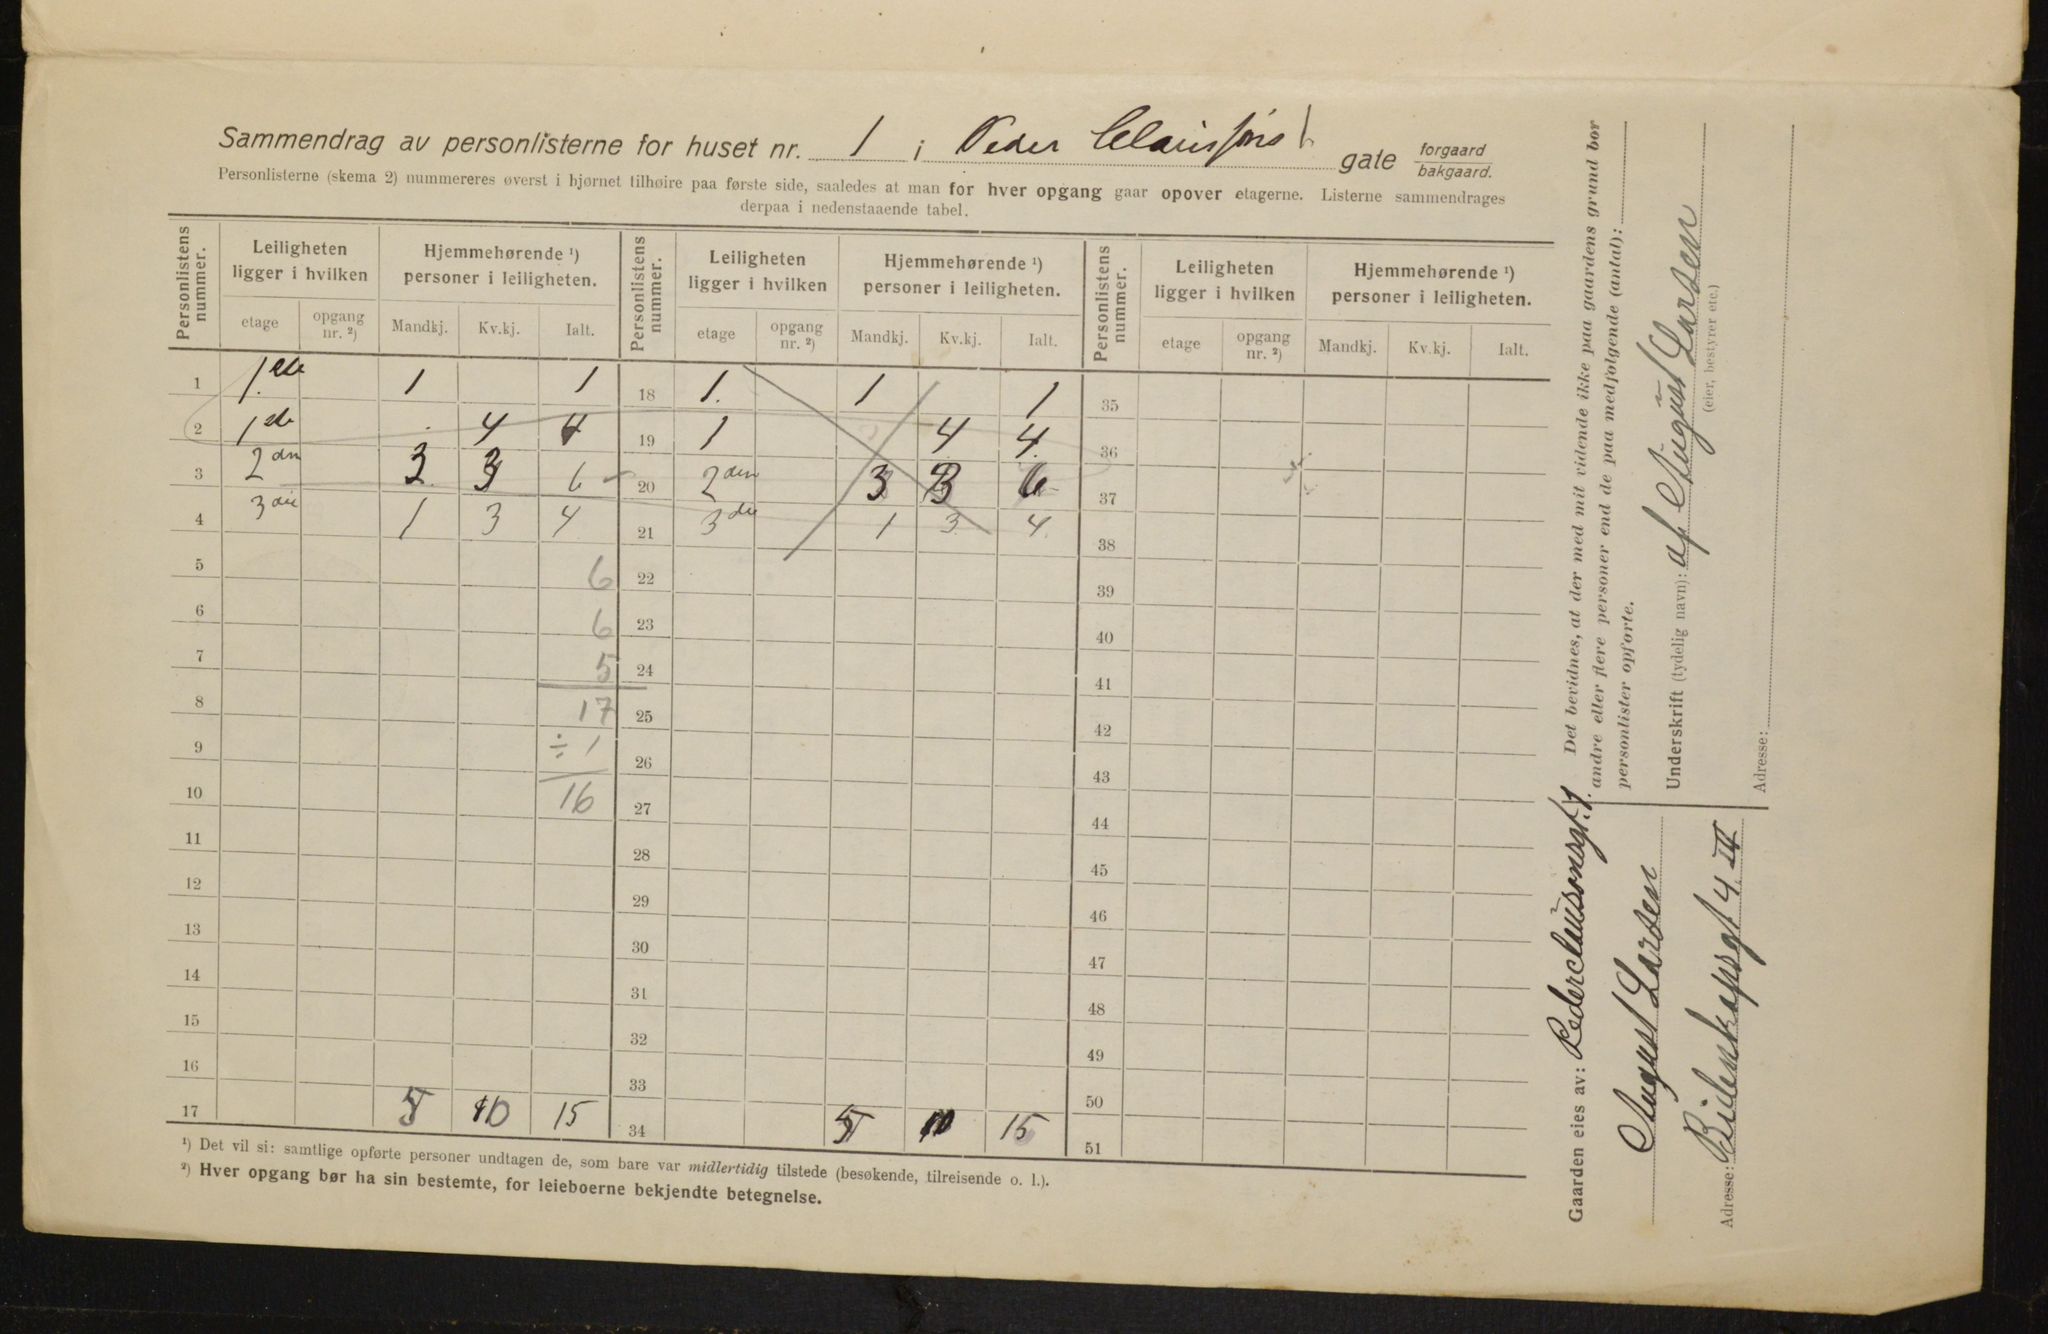 Sammendrag av personlisterne for huset nr. 1 i Peder Clausføns gate forgaard bakgaard.
Personlisterne (skema 2) nummereres øverst i hjørnet tilhøire paa første side, saaledes at man for hver opgang gaar opover etagerne. Listerne sammendrages
derpaa i nedenstaaende tabel.
Personlistens nummer. Leiligheten ligger i hvilken Hjemmehørende ¹) personer i leiligheten. Personlistens nummer. Leiligheten ligger i hvilken Hjemmehørende ¹) personer i leiligheten. Personlistens nummer. Leiligheten ligger i hvilken Hjemmehørende ¹) personer i leiligheten.
etage opgang nr. ²) Mandkj. Kv.kj. Ialt. etage opgang nr. ²) Mandkj. Kv.kj. Ialt. etage opgang nr. ²) Mandkj. Kv.kj. Ialt.
1 1. ste 1 1 18 1. 1 1 35
2 1 ste 4 4 19 1 4 4 36
3 2 den 3 3 6 20 2 den 3 3 6 37
4 3 die 1 3 4 21 3 die 1 3 4 38
5 6 22 39
6 6 23 40
7 5 24 41
8 17 25 42
9 ÷ 1 26 43
10 16 27 44
11 28 45
12 29 46
13 30 47
14 31 48
15 32 49
16 33 50
17 5 10 15 34 5 10 15 51
¹) Det vil si: samtlige opførte personer undtagen de, som bare var midlertidig tilstede (besøkende, tilreisende o. l.).
²) Hver opgang bør ha sin bestemte, for leieboerne bekjendte betegnelse.
Det bevidnes, at der med mit vidende ikke paa gaardens grund bor
andre eller flere personer end de paa medfølgende (antal):
personlister opførte.
Underskrift (tydelig navn): af August Larsen
(eier, bestyrer etc.)
Adresse:
Gaarden eies av: Pederclausonsgt. 1.
August Larsen
Adresse: Bidenkapsgt 4 III